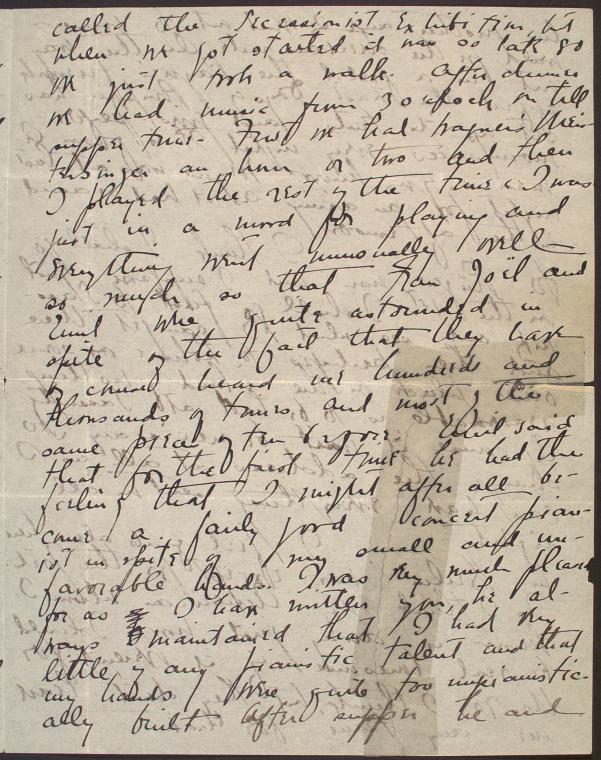 called the Secessionist Exhibition, but
when we got started it was so late so
we just took a walk. After dinner
we had music from 3 o'clock on till
supper time. First we had Wagner's Meis-
tersinger an hour or two and then
I played the rest of the time. I was
just in a mood for playing and
everything went unusually well
so much so that Frau Joël and
Emil were quite astounded in
spite of the fact that they have
of course heard me hundreds and
thousands of times, and most of the
same pieces often before. Emil said
that for the first time he had the
feeling that I might after all be-
come a fairly good concert pian-
ist in spite of my small and un-
favorable hands. I was very much pleased
for as I have written you, he al-
ways maintained that I had very
little if any pianistic talent and that
my hands were quite too unpianistic-
ally built. After supper he and